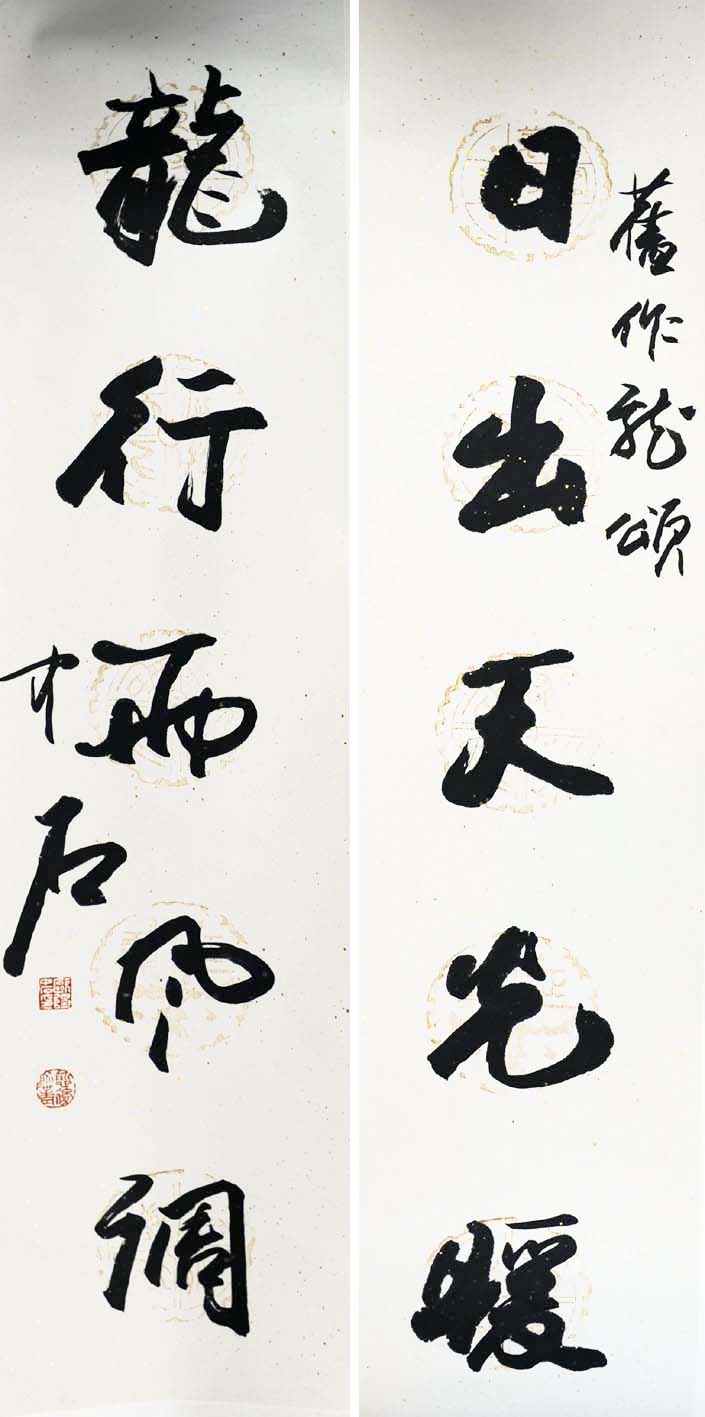 舊作龍頌
日出天光暖
龍行雨風調
石